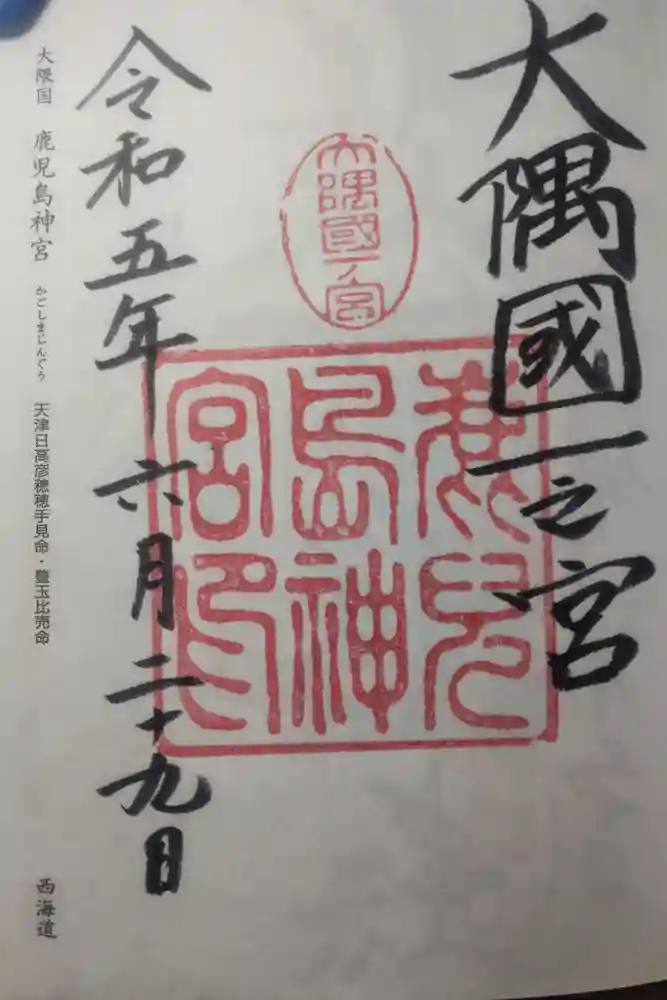 大隅國一之宮
大隅國一ノ宮
鹿兒島神宮印
令和五年六月二十九日
大隈国 鹿児島神宮 かごしまじんぐう 天津日高彦穂穂手見命・豊玉比売命 西海道